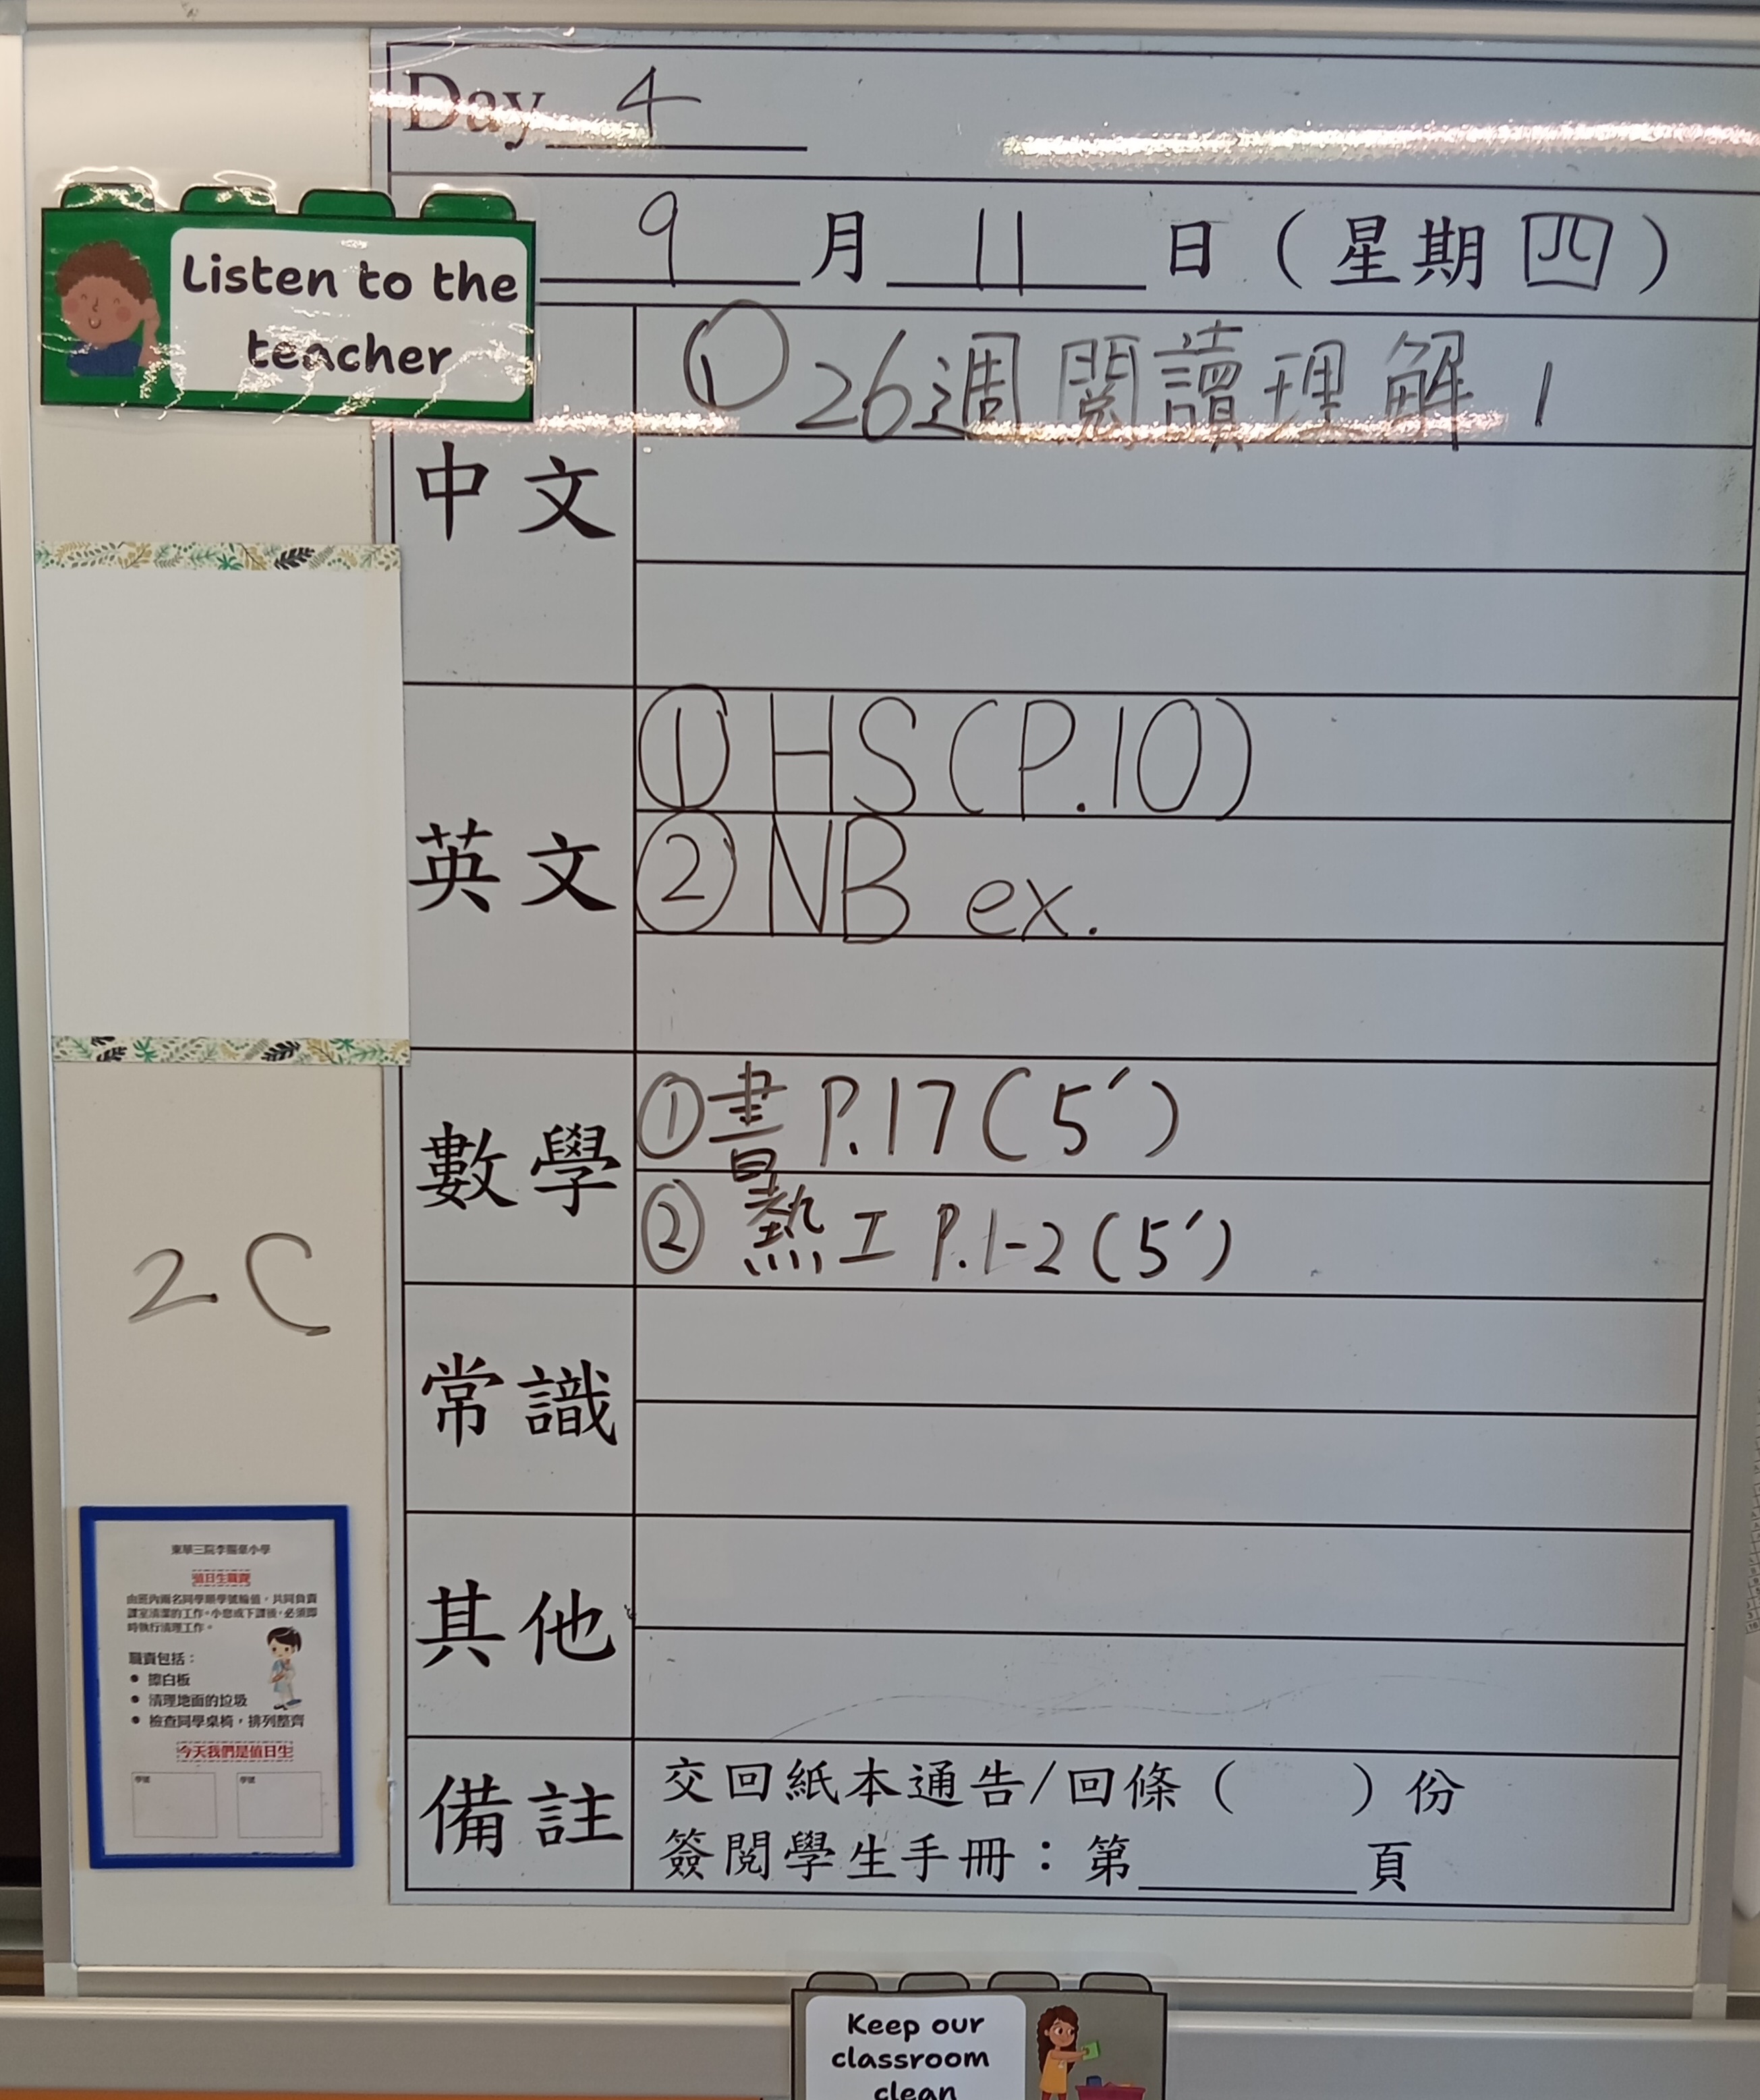 Day 4
Listen to the
teacher
9 月 11 日 (星期四)
中文
① 26週閱讀理解 1
英文
① HS (P.10)
② NB ex.
數學
① 書 P.17 (5′)
② 熱工 P.1-2 (5′)
2C
常識
其他
備註
交回紙本通告/回條 ( ) 份
簽閱學生手冊：第 頁
值日生職責
由班內兩名同學順學號輪值，共同負責
課室清潔的工作。小息或下課後，必須即
時執行清理工作。
職責包括：
• 擦白板
• 清理地面的垃圾
• 檢查同學桌椅，排列整齊
今天我們是值日生
學號 學號
Keep our
classroom
clean